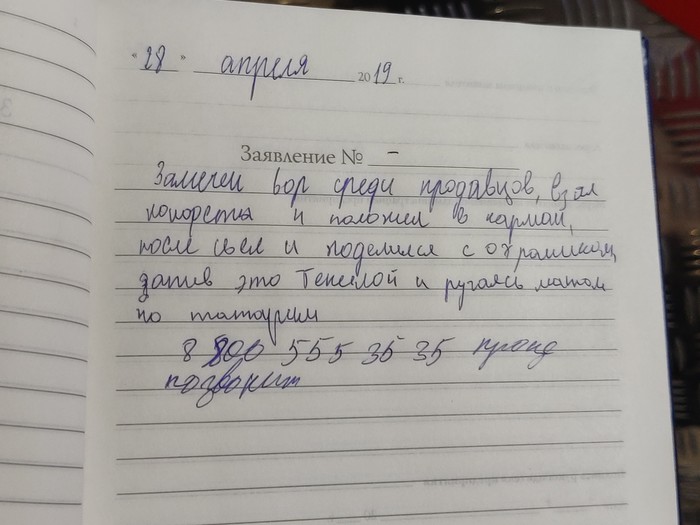 "28" апреля 2019 г.
Заявление № -
Замечен вор среди продавцов, взял
конфеты и положил в карман,
после съел и поделился с охранником,
запив это Текилой и ругаясь матом
по татарски
8 800 555 35 35